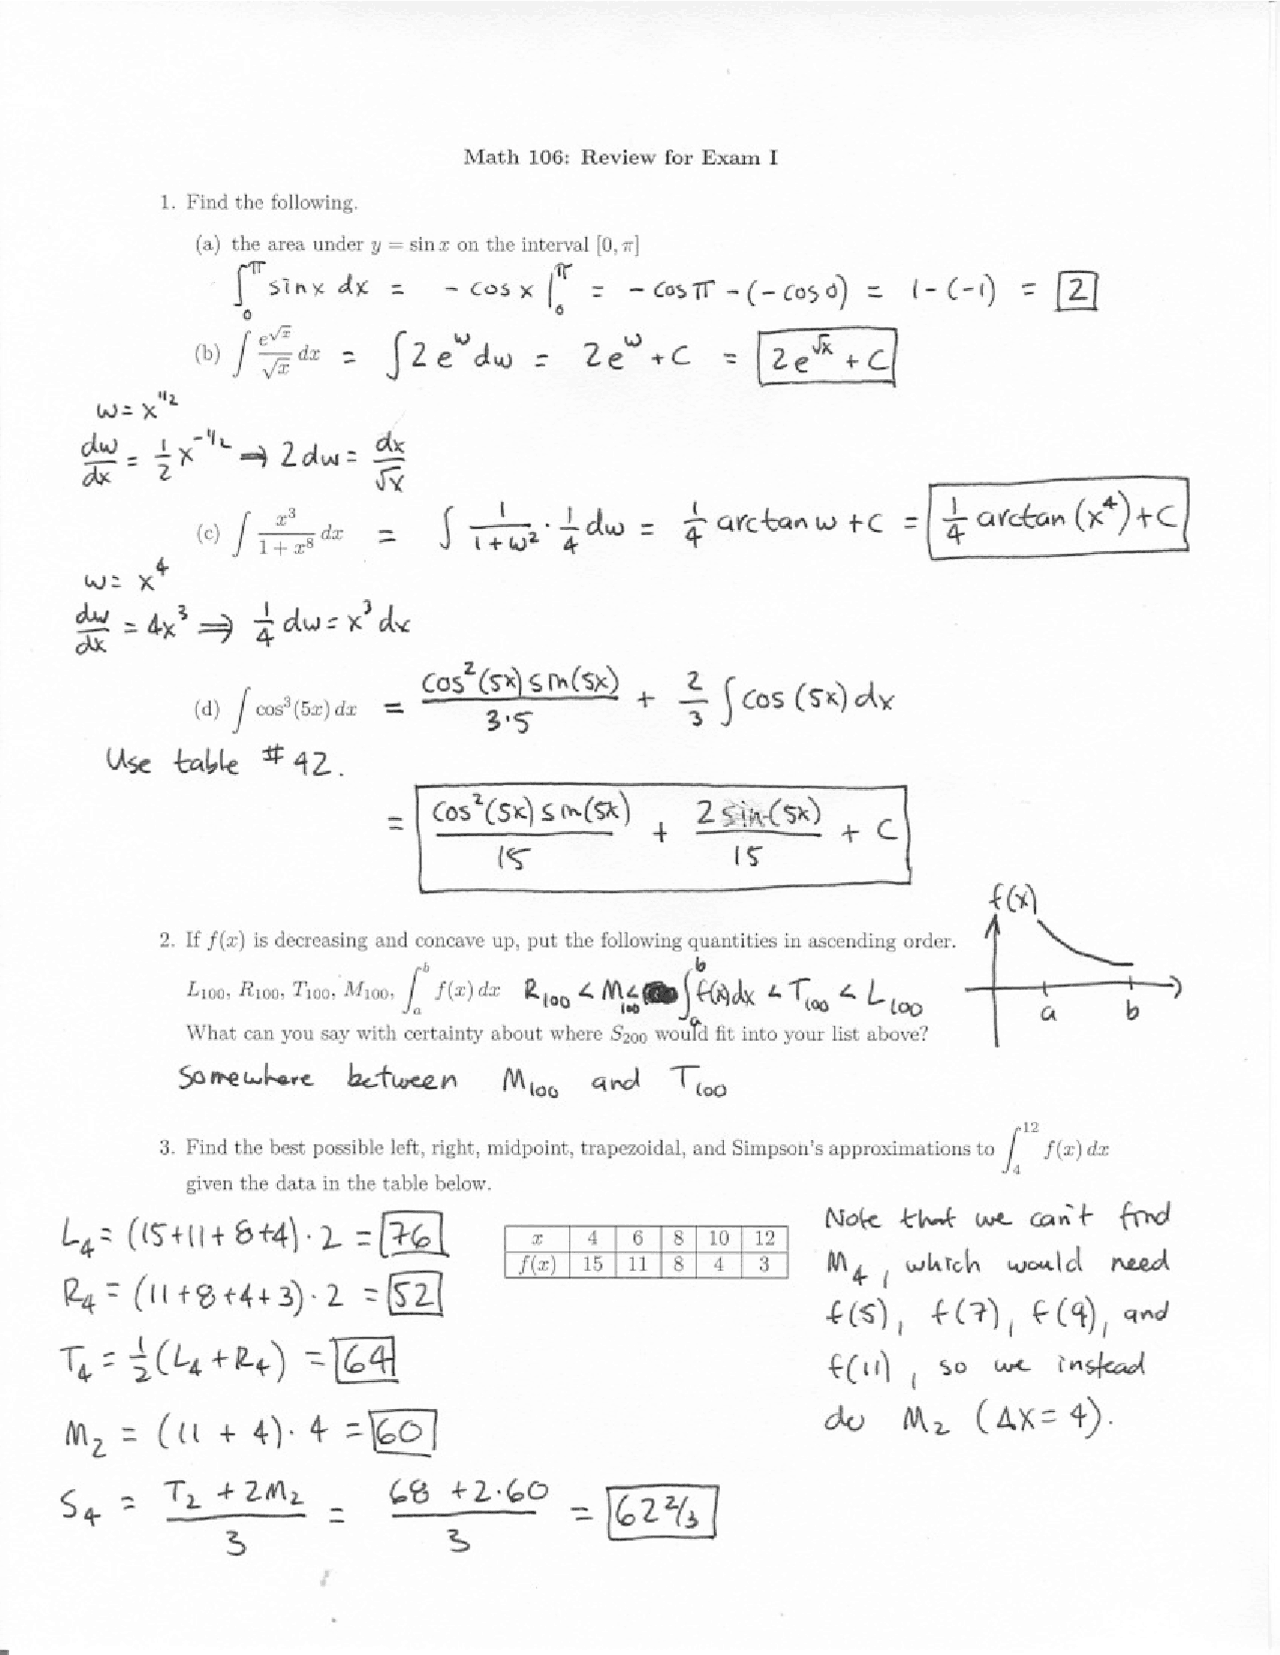 Math 106: Review for Exam I
1. Find the following.
(a) the area under y = sin x on the interval [0, π]
∫₀^π sin x dx = - cos x |₀^π = - cos π - (- cos 0) = 1 - (-1) = 2
(b) ∫ e^√x/√x dx = ∫ 2e^w dw = 2e^w + C = 2e^√x + C
w = x^1/2
dw/dx = 1/2 x^-1/2 ⇒ 2dw = dx/√x
(c) ∫ x³/(1 + x⁸) dx = ∫ 1/(1+w²) · 1/4 dw = 1/4 arctan w + C = 1/4 arctan (x⁴) + C
w = x⁴
dw/dx = 4x³ ⇒ 1/4 dw = x³ dx
(d) ∫ cos³(5x) dx = cos²(5x) sin(5x)/3·5 + 2/3 ∫ cos (5x) dx
Use table # 42.
= cos²(5x) sin(5x)/15 + 2 sin(5x)/15 + C
f(x)
2. If f(x) is decreasing and concave up, put the following quantities in ascending order.
L₁₀₀, R₁₀₀, T₁₀₀, M₁₀₀, ∫ₐᵇ f(x) dx R₁₀₀ < M₁₀₀ < ∫ₐᵇ f(x)dx < T₁₀₀ < L₁₀₀
a b
What can you say with certainty about where S₂₀₀ would fit into your list above?
Somewhere between M₁₀₀ and T₁₀₀
3. Find the best possible left, right, midpoint, trapezoidal, and Simpson's approximations to ∫₄¹² f(x) dx
given the data in the table below.
x 4 6 8 10 12
f(x) 15 11 8 4 3
L₄ = (15+11+8+4)·2 = 76
R₄ = (11+8+4+3)·2 = 52
T₄ = 1/2 (L₄ + R₄) = 64
M₂ = (11 + 4)·4 = 60
S₄ = T₂ + 2M₂/3 = 68 + 2·60/3 = 62 2/3
Note that we can't find
M₄, which would need
f(5), f(7), f(9), and
f(11), so we instead
do M₂ (Δx = 4).